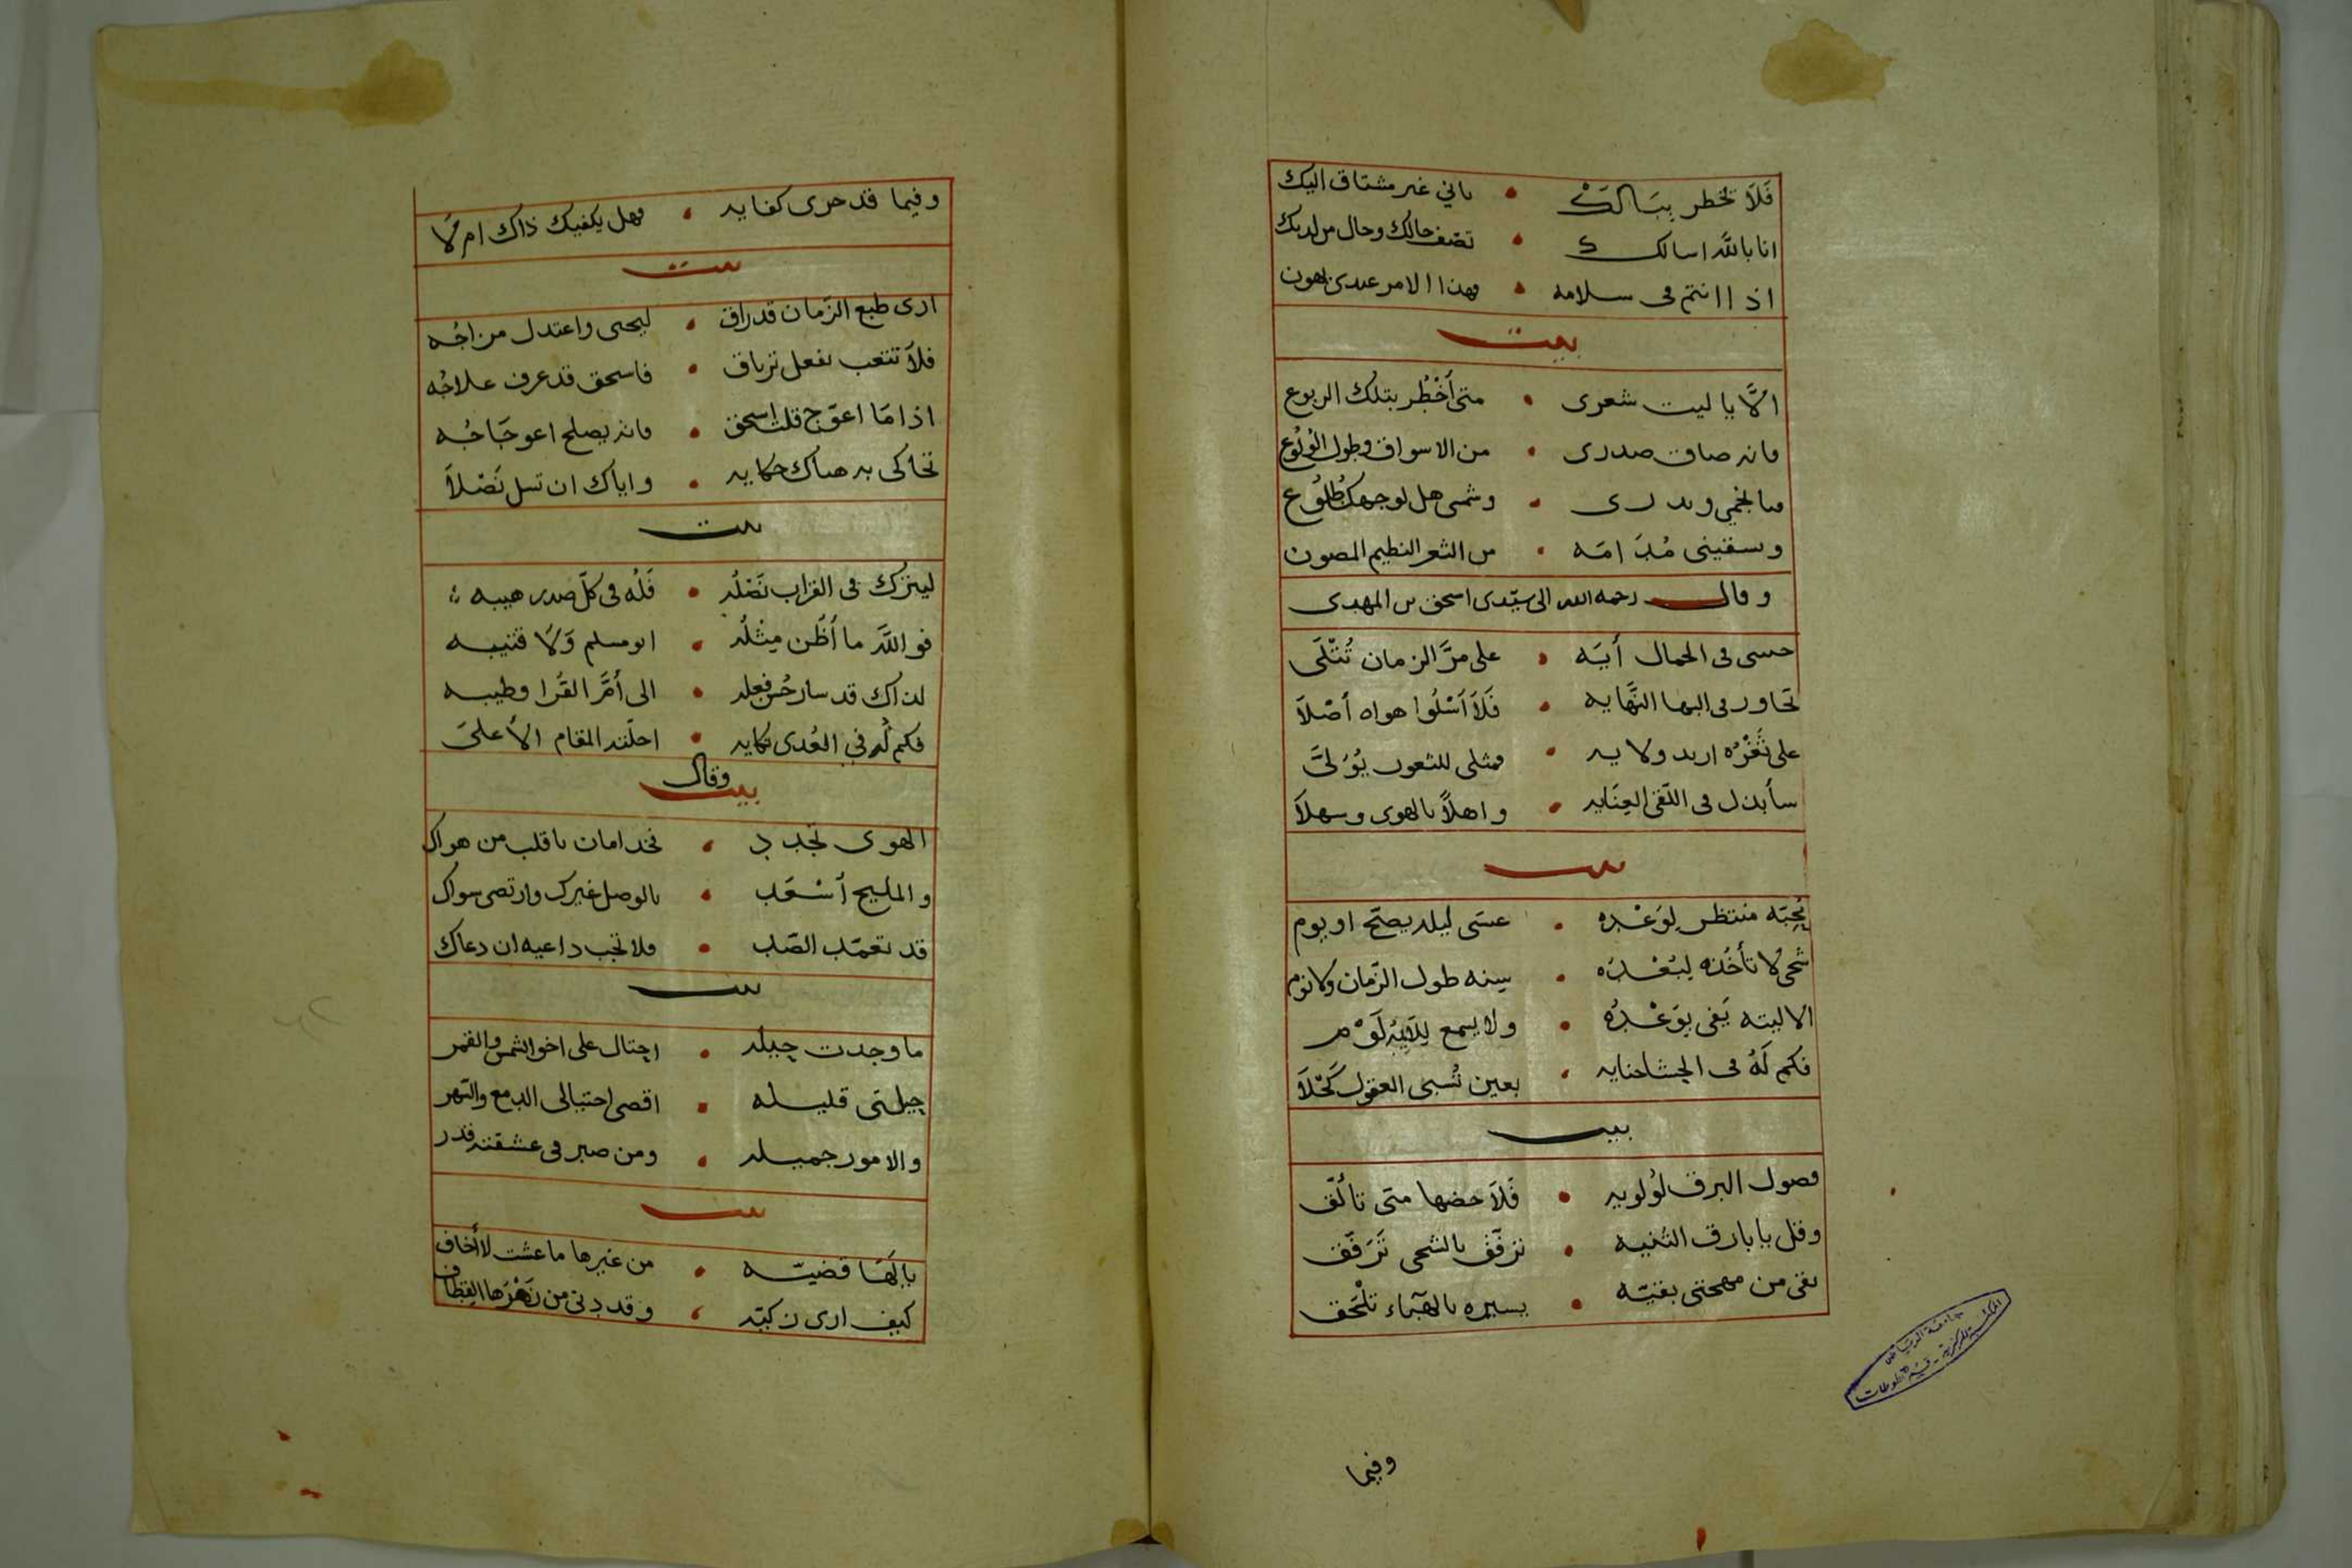 فَلَا تخطر بِبَالَكْ • باني غير مشتاق اليك
انا باللَّه اسالك • تصف حالك وحال من لديك
اذا انتم فى سلامه • فهذا الامر عندى يهون
بيت
الَّا يا ليت شعرى • متى أَخْطُر بتلك الربوع
فانه ضاق صدرى • من الاسواق وطول الوُلُوع
فيا نجمي وبدرى • وشمسى هل لوجهك طُلُوع
وسقينى مُدَامَه • من الثغر النظيم المصون
وقال رحمه الله الى سيّدى اسحق بن المهدى
حبيبى فى الجمال أيَه • على مرَّ الزمان تُتْلَى
تجاوز فى البها النَّهايه • فَلَا اَسْلُوا هواه أصْلَا
على ثَغْرُه اريد ولايه • فمثلى للثغور يُوَلىَّ
سأبذل فى اللّقى العِنَايه • واهلاً بالهوى وسهلَا
بيت
مُحِبّه منتظر لِوَعْدِه • عسَى ليله يصحّ او يوم
شجى لا تأخُذه لِبُعْدُه • سِنه طول الزّمان ولا نوم
الا ليته يَفى بِوَعْدُه • ولا يسمع لِلَايِمْ لَوْم
فكم لَهُ فى الحشا جنايه • بعين تُسبى العقول كَحْلَا
بيت
فصول البرق لُولويه • فَلَاحضها متى تألّق
وقل يا بارق الثنيه • ترفّق بالشجى تَرَفّق
بقى من مهجتى بقيّه • يسيره بالهَبَاء تلْحَق
وفيما
وفيما قد جرى كفايه • فهل يكفيك ذاك ام لَا
بيت
ارى طبع الزّمان قد راق • ليحيى واعتدل مزاجُه
فلَا تتعب بفعل ترياق • فاسحق قد عرف علاجُه
اذا مَا اعوّج قلت اسحق • فانه يصلح اعوجَاجُه
تحاكى به هناك حكايه • واياك ان تسل نَصْلَا
بيت
ليترك فى القراب نَصْلُه • فَلُه فى كلّ صدر هيبه
فو اللَّه ما أظُن مِثْلُه • ابو مسلم وَلَا قتيبه
لذاك قد سار حُسن فعله • الى أمَّ القُرا وطيبه
فكم لُه في العُدى نكايه • احلّته المقام الأعلىَ
وقال
بيت
الهوى تجدد • فخد امان يا قلب من هواك
والمليح أسْعَد • بالوصل غيرك وارتضى سواك
قد تعمّد الصّد • فلا تجب داعيه ان دعاك
بيت
ما وجدت حيله • احتال على اخو الشمس والقمر
حيلتى قليله • اقصى احتيالى الدمع والسّهر
والامور جميله • ومن صبر فى عشقته قدر
بيت
يا لَهَا قضيّه • من غيرها ما عشت لا أخاف
كيف ارى زكيّه • وقد دنى من زَهْرَها القِطاف
جامعة الرياض
المكتبة المركزية - قسم المخطوطات